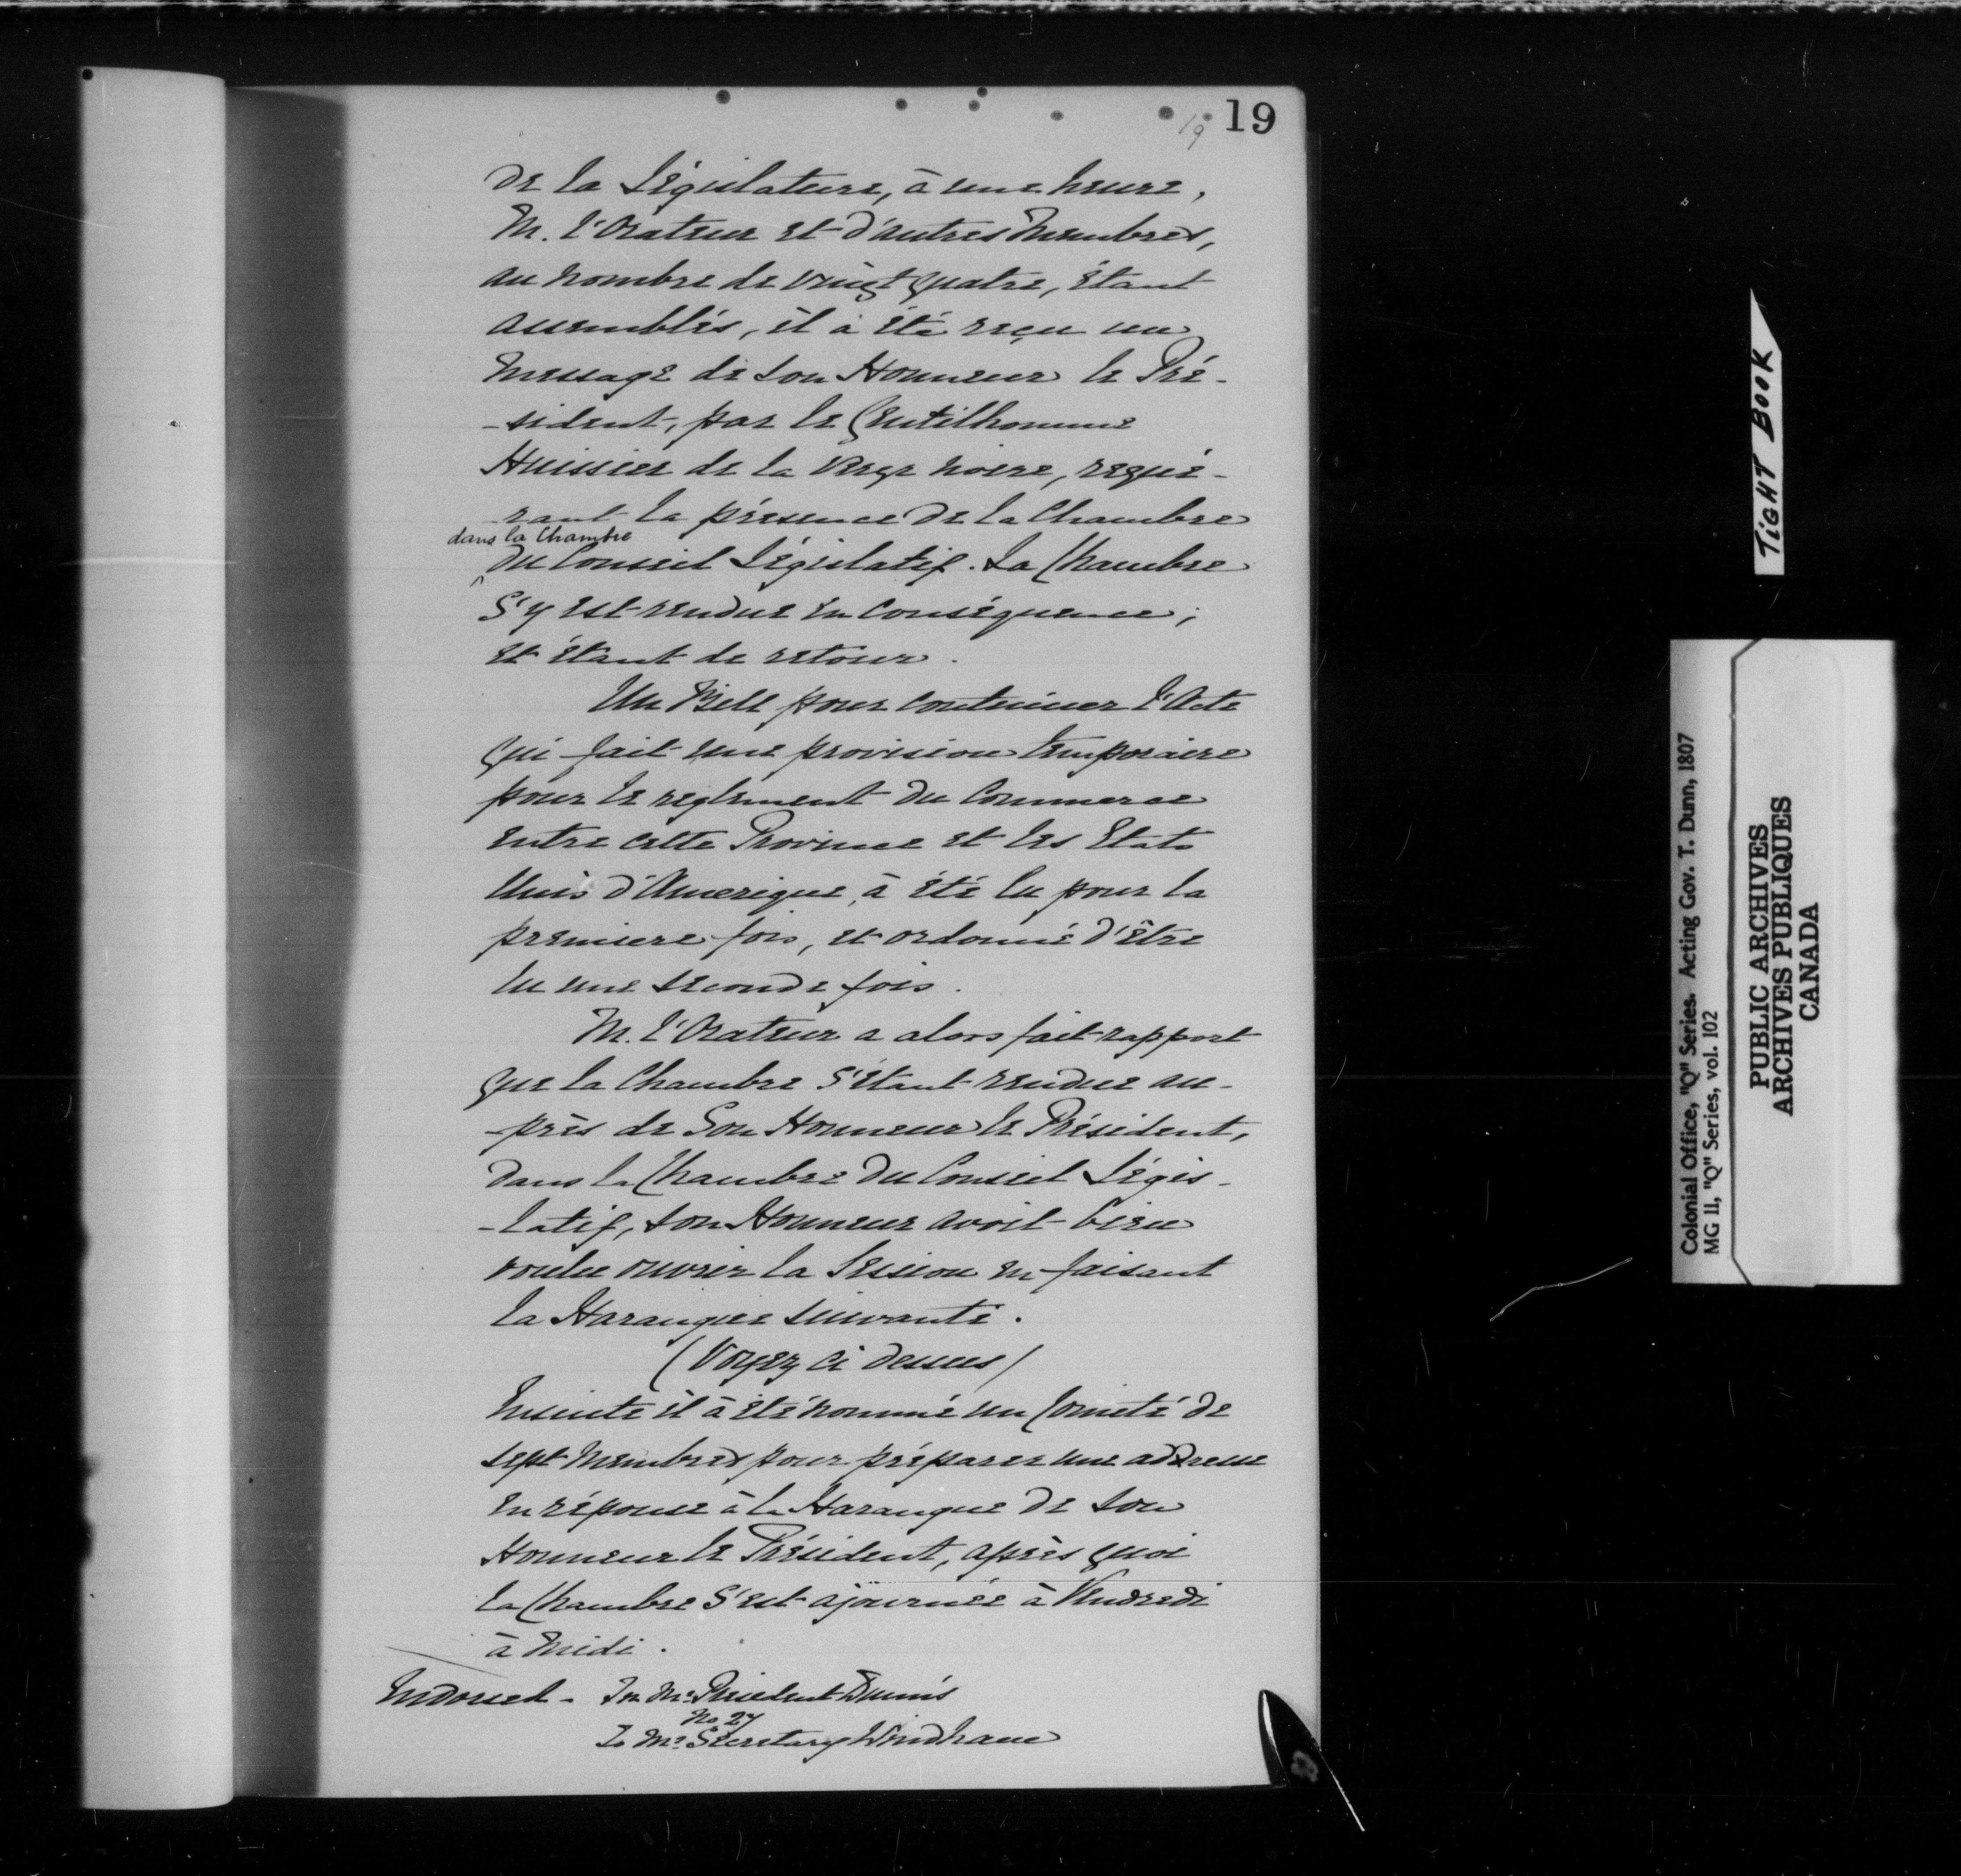 19
19
de la Législature, à une heure,
M. l'Orateur et d'autres Membres,
au nombre de vingt quatre, étant
assemblés, il à été reçu un
Message de son Honneur le Pré-
-sident, par le Gentilhomme
Huissier de la Verge noire, requé-
-rant la présence de la Chambre
dans la Chambre
du Conseil Législatif. La Chambre
S'y est rendue en Conséquence;
et étant de retour.
Un Bill pour continuer l'Acte
qui fait une provision temporaire
pour le reglement du Commerce
entre cette Province et les Etats
Unis d'Amerique, à été lu pour la
premiere fois, et ordonné d'être
lu une seconde fois.
M. l'Orateur a alors fait rapport
que la Chambre S'étant rendue au-
-près de Son Honneur le Président,
dans la Chambre du Conseil Légis-
-latif, son Honneur avoit bien
voulu ouvrir la Session en faisant
la Harangue suivante.
(Voyez ci dessus)
Ensuite il à été nommé un Comité de
sept Membres pour préparer une addresse
en réponse à la Harangue de son
Honneur le Président, après quoi
la Chambre S'est ajournée à Vendredi
à Midi.
Endorsed - In Mr. President Dunn's
No 27
To Mr. Secretary Windham
TIGHT BOOK
Colonial Office, "Q" Series. Acting Gov. T. Dunn, 1807
MG 11, "Q" Series, vol. 102
PUBLIC ARCHIVES
ARCHIVES PUBLIQUES
CANADA